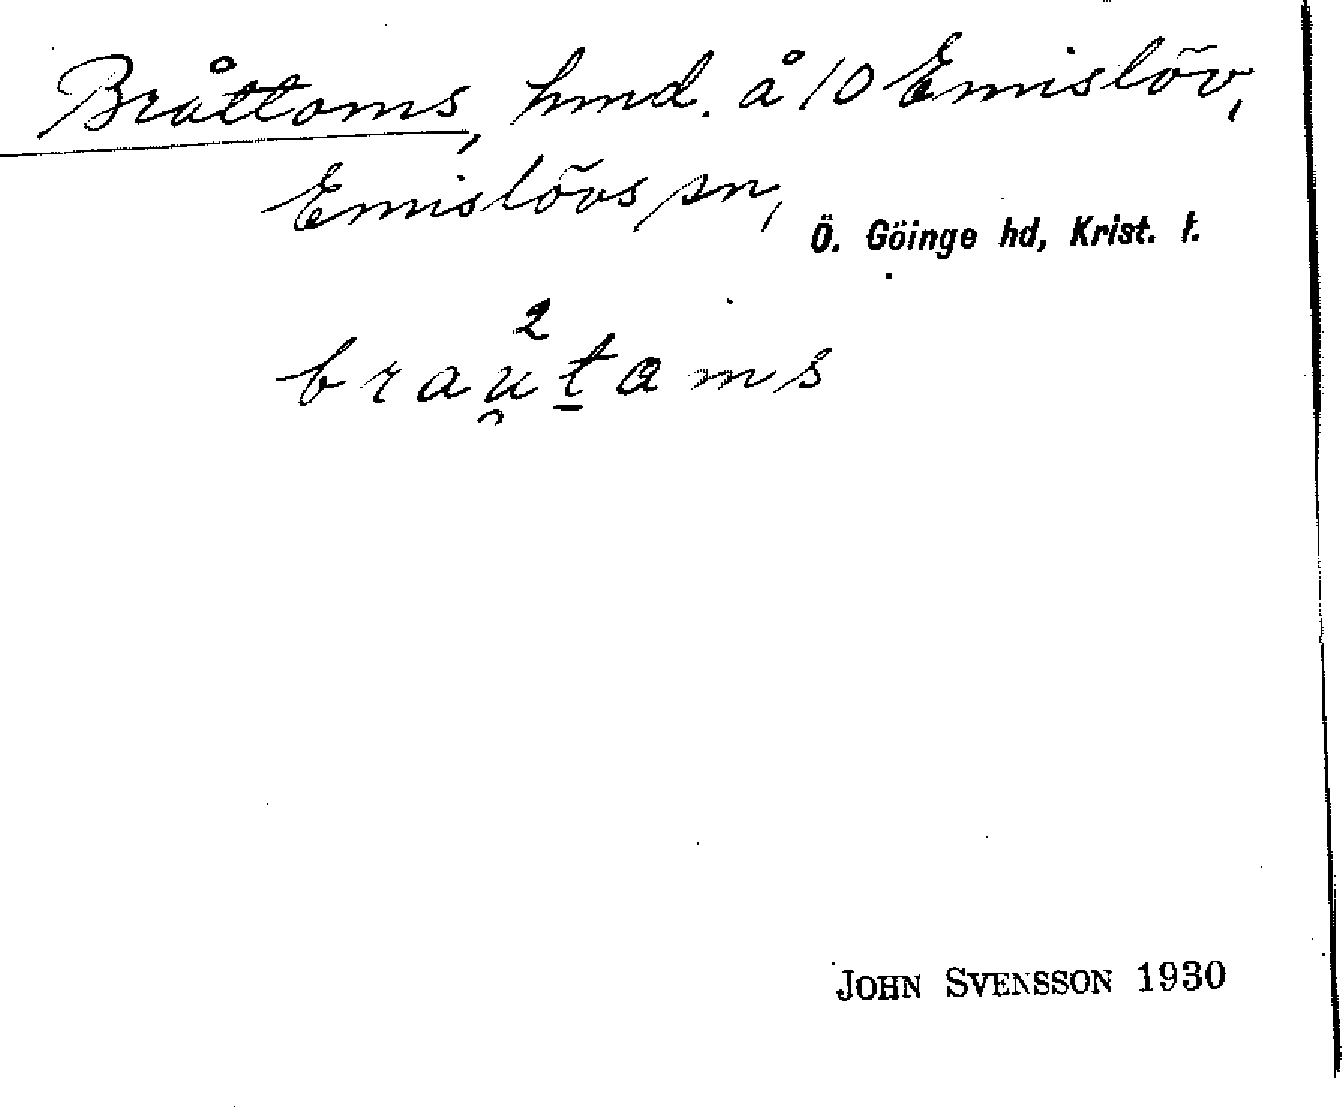 Bråttoms, hmd. å 10 Emislöv,
Emislövs sn,
Ö. Göinge hd, Krist. l.
2
brau̯t̲ams
JOHN SVENSSON 1930